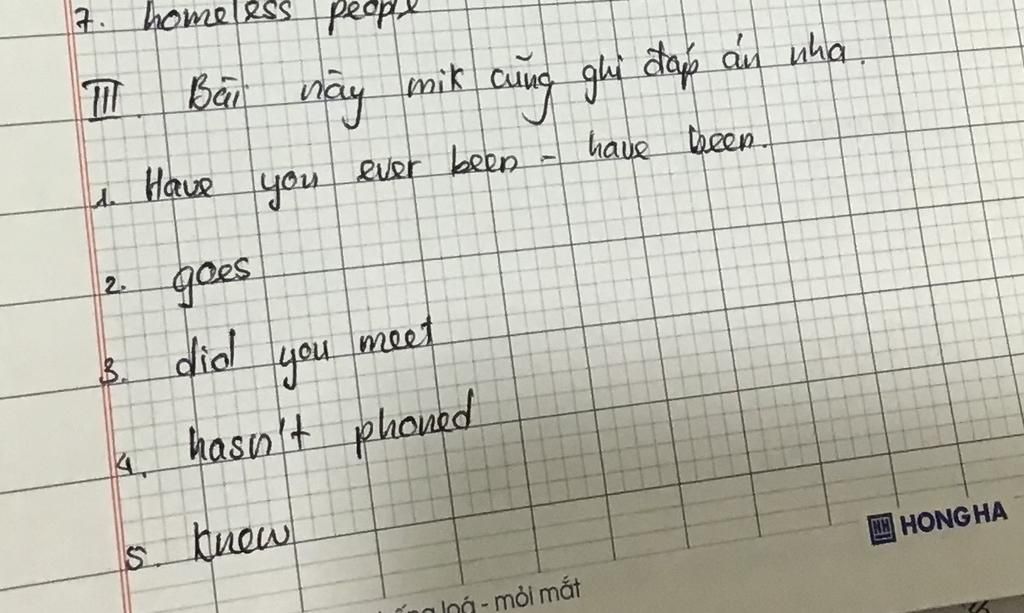 7. homeless people
III. Bài này mik cũng ghi đáp án nha.
1. Have you ever been - have been.
2. goes
3. did you meet
4. hasn't phoned
5. knew
HH HONG HA
loá - mỏi mắt